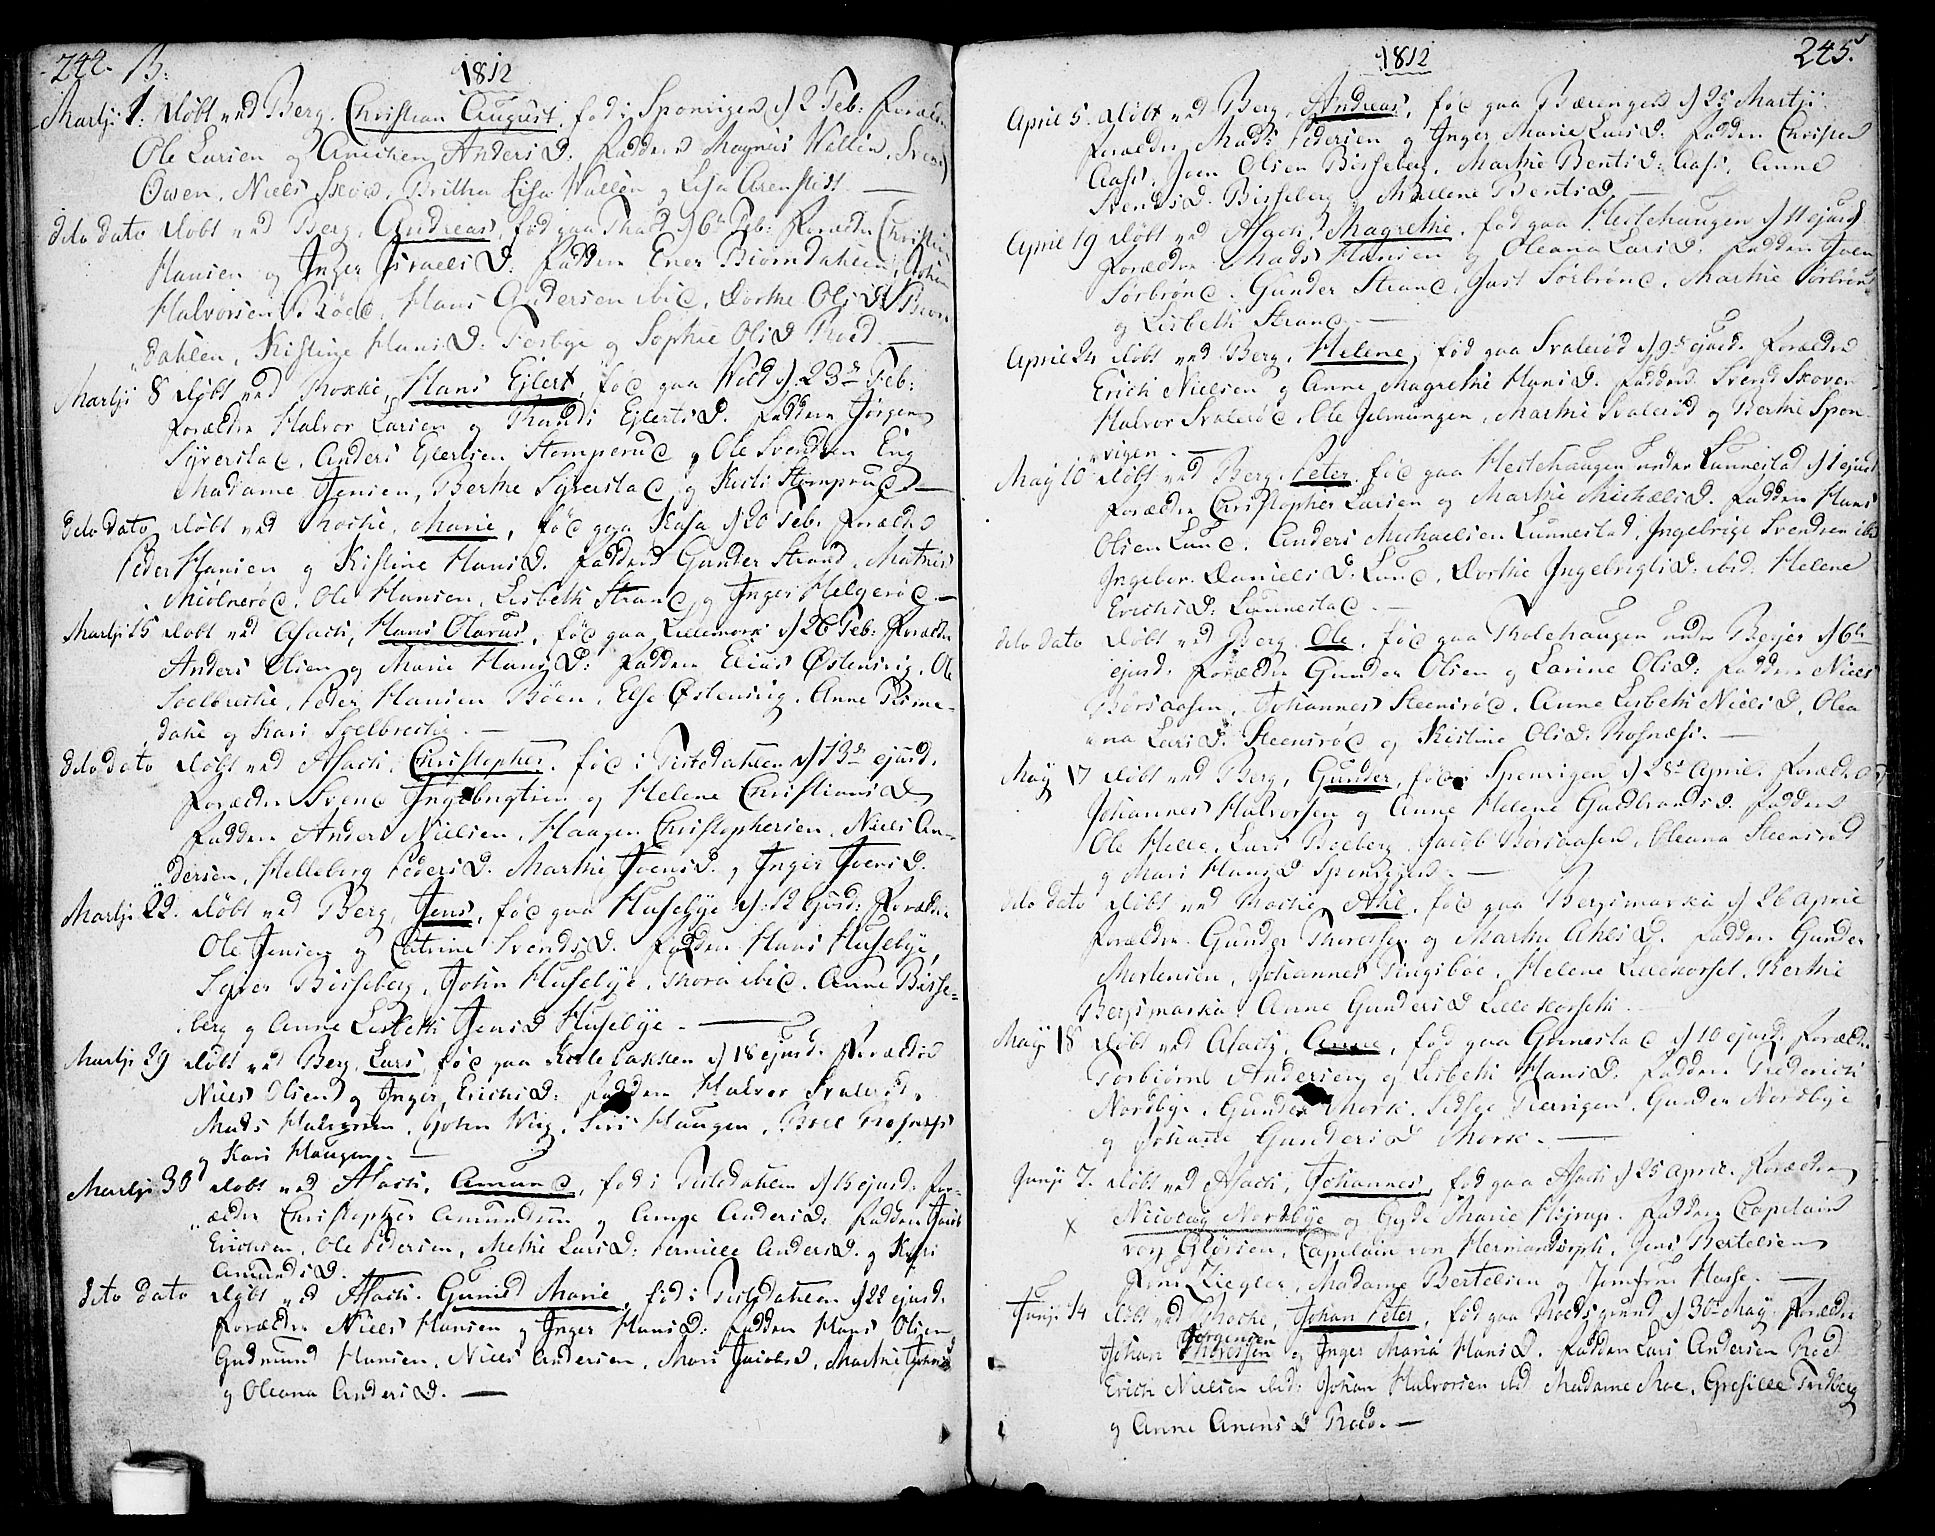 242. B.
1812
Martji 1. Døbt ved Berg, Christian August, fød i Sponvigen d 2 Feb: Forældre
Ole Larsen og Anichen AndersD: Faddere Magnus Wallin, Svend
Owen, Niels Skow, Britha Lisa Wallen og Lisa Arenstist
dito dato Døbt ved Berg, Andreas, fød paa d 6 Feb: Forældre Christian
Hansen og Inger IsraelsD: Faddere Ener Biørndahlen, Johan
Halvorsen Röed, Hans Andersen ibid, Dorthe OlsD Biørn
dahlen, Kistine HansD: Torbye og Sophie OlsD Roed.
Martji 8 Døbt ved Rokke, Hans Ejlert, fød paa Wold d. 23de Feb:
Forældre Halvor Larsen og Randi EjlertsD. Faddere Jørgen
Syverstad, Anders Ejlertsen Stomperud og Ole Svendsen Eng
Madame Jensen, Berthe Syverstad og Kisti Stomprud
dito dato Døbt ved Rocke, Marie, fød paa Kasa d 20 Feb: Forældre
Peder Hansen og Kistine HansD. Faddere Gunder Strand, Mathis
Miölnerød, Ole Hansen, Lisbeth Strand og Inger Helgerød.
Martji 15 Døbt ved Asach, Hans Olavus, fød paa Lillemork d 26 Feb: Forældre
Anders Olsen og Marie HansD: Faddere Elias Østensvig, Ole
Soelbrekke, Peder Hansen Böen, Else Østensvig, Anne
dahl og Kari Soelbrekke.
dito dato Døbt ved Asach, Christopher, fød i Tistedahlen d 13de ejusd.
Forældre Svend Ingebrigtsen og Helene ChristiansD.
Faddere Anders Nielsen, Haagen Christophersen, Niels An-
dersen, Helleberg PedersD. Marthe JvensD. og Inger JvensD.
Martji 22. Døbt ved Berg, Jens, fød paa Husebye d. 12 ejusd: Forældre
Ole Jensen og Catrine SvendsD. Faddere Hans Husebye,
Syver Bisseberg, John Husebye, Thora ibid. Anne Bisse-
berg og Anne Lisbeth JensD Husebye.
Martji 29 Døbt ved Berg, Lars, fød paa Kollebakken d 18 ejusd. Forældre
Niels Olsen og Inger ErichsD: Faddere Halvor Svalerød,
Mads Halvorsen, John Wiig, Siri Haugen,
og Kari Haugen.
Martji 30 Døbt ved Asach, Amund, fød i Tistedahlen d 15 ejusd. For-
ældre Christopher Amundsen og Anne AndersD: Faddere Jacob
Erichsen, Ole Pedersen, Methe LarsD: Pernille AndersD. og Kari
AmundsD.
dito dato Døbt ved Asach, Gunild Marie, fød i Tistedahlen d 22 ejusd.
Forældre Niels Hansen og Inger HansD: Faddere Hans Olsen,
Gudmund Hansen, Niels Andersen, Mari JacobsD, Marthe Johns
og Oleana AndersD.
1812
245.
April 5. Døbt ved Berg, Andreas, fød paa Bærengen d 25 Martji.
Forældre Mads Pedersen og Inger Marie LarsD. Faddere Christen
Aass, Joen Olsen Bisseberg, Marthe BentsD: Aass, Anne
SvendsD. Bisseberg, Mallene BentsD.
April 19 Døbt ved Asach, Magrethe, fød paa Hestehaugen d 11 ejusd.
Forældre Mads Hansen og Oleana LarsD. Faddere Joen
Sörbrönd, Gunder Strand, Just Sörbrönd, Marthe Sörbrönd
og Lisbeth Strand.
April 24 Døbt ved Berg, Helene, fød paa Svalerød d 9de ejusd. Forældre
Erich Nielsen og Anne Magrethe HansD. Faddere Svend Skoven
Halvor Svalerød, Ole Jelmungen, Marthe Svalerød og Berthe Spon-
vigen.
May 10 Døbt ved Berg, Peter, fød paa Hestehaugen under Lunnestad d 1 ejusd
Forældre Christopher Larsen og Marthe MichelsD. Faddere Hans
Olsen Lund, Anders Michaelsen Lunnestad, Ingebrigt Svendsen ibid
Ingebor DanielsD. Lund, Dorthe IngebrigtsD. ibid. Helene
ErichsD: Lunnestad.
dito dato Døbt ved Berg, Ole, fød paa Tholehaugen under Beyer d 6te
ejusd. Forældre Gunder Olsen og Larine OlsD: Faddere Niels
Börsaasen, Johannes Steensrød, Anne Lisbeth NielsD, Olea
na LarsD. Steensrød og Kistine OlsD. Rosnæss.
May 17 Døbt ved Berg, Gunder, fød Sponvigen d 28de April. Forældre
Johannes Halvorsen og Anne Helene GudbrandsD. Faddere
Ole Helle, Lars Beeberg, Jacob Börsaasen, Oleana Steensrød
og Mari HansD Sponvigen.
dito dato Døbt ved Rocke, Ahle, fød paa Bergsmarka d 26 April
Forældre Gunder Thoresen og Marthe AhlesD. Faddere Gunder
Mortensen, Johannes Tingsböe, Helene Lillekorset, Berthe
Bergsmarka Anne GundersD Lillekorseth.
May 18 Døbt ved Asach, Anne, fød paa Gunnestad d 10 ejusd. Forældre
Torbiörn Andersen og Lisbeth HansD. Faddere Frederich
Nordbye, Gunder Mork, Sidsee, Gunder Nordbye
og Johane GundersD Mork.
Junji 7. Døbt ved Asach, Johannes, fød paa Asach d 25 April. Forældre
x Nicolay Nordbye og Gyde Marie Hiirup. Faddere Capitain
von Glörsen, Capitain von Hermansdorph, Jens Bertelsen
Fins Ziegler, Madame Bertelsen og Jomfrue Hasse.
Junji 14 Døbt ved Rocke, Johan Peter, fød paa Roedsgrund d 30te May. Forældre
Jørgensen
Johan Thoresen og Inger Maria HansD. Faddere Lars Andersen Roed
Erich Nielsen ibid: Johan Halvorsen ibid Madame Moe, Gresille Tredberg
og Anne ArensD Roed.